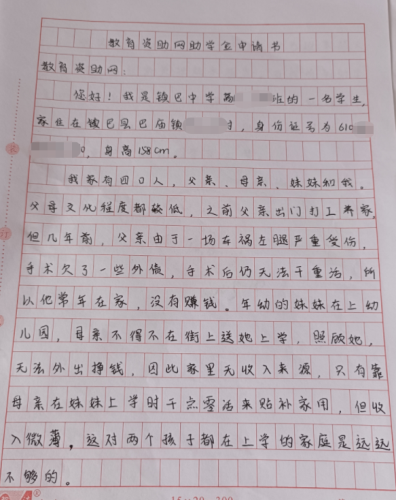 教育资助网助学金申请书
教育资助网:
您好!我是镇巴中学高 班的一名学生,
家住在镇巴县巴庙镇 村,身份证号为610
0,身高158cm。
我家有四口人,父亲、母亲、妹妹和我。
父母文化程度都较低,之前父亲出门打工养家,
但几年前,父亲由于一场车祸左腿严重受伤,
手术欠了一些外债,手术后仍无法干重活,所
以他常年在家,没有赚钱。年幼的妹妹在上幼
儿园,母亲不得不在街上送她上学,照顾她,
无法外出挣钱,因此家里无收入来源,只有靠
母亲在妹妹上学时干点零活来贴补家用,但收
入微薄,这对两个孩子都在上学的家庭是远远
不够的。